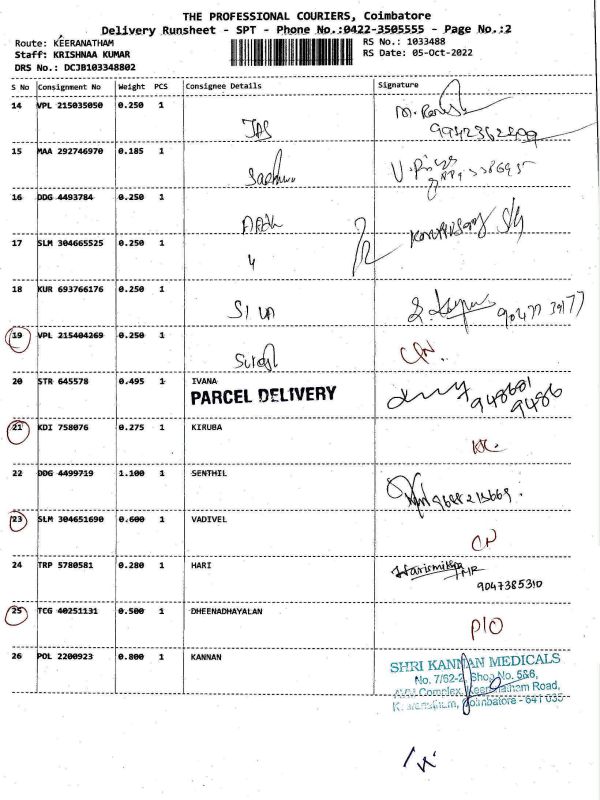 THE PROFESSIONAL COURIERS, Coimbatore
Delivery Runsheet - SPT - Phone No.:0422-3505555 - Page No.:2
Route: KEERANATHAM
RS No.: 1033488
Staff: KRISHNAA KUMAR
RS Date: 05-Oct-2022
DRS No.: DCJB103348802
S No Consignment No Weight PCS Consignee Details Signature
14 VPL 215035050 0.250 1 JAS
15 MAA 292746970 0.185 1
16 DDG 4493784 0.250 1
17 SLM 304665525 0.250 1 4
18 KUR 693766176 0.250 1 SIVA
19 VPL 215404269 0.250 1 CN.
20 STR 645578 0.495 1 IVANA
PARCEL DELIVERY
21 KDI 758076 0.275 1 KIRUBA
22 DDG 4499719 1.100 1 SENTHIL
23 SLM 304651690 0.600 1 VADIVEL CN
24 TRP 5780581 0.280 1 HARI
9047385310
25 TCG 40251131 0.500 1 DHEENADHAYALAN P/O
26 POL 2200923 0.800 1 KANNAN
SHRI KANNAN MEDICALS
No. 7/62-2, Shop No. 5&6,
Complex, Keeranatham Road,
Coimbatore - 641 035